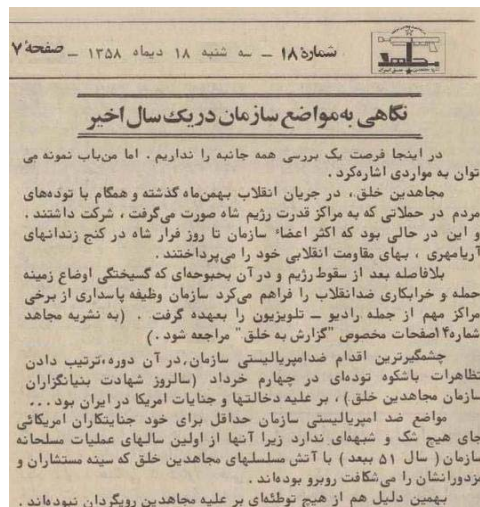 شمارهٔ ۱۸ – سه شنبه ۱۸ دیماه ۱۳۵۸ – صفحهٔ ۷
مجاهد
نگاهی به‌مواضع سازمان در یک سال اخیر
در اینجا فرصت یک بررسی همه جانبه را نداریم . اما من‌باب نمونه می
توان به مواردی اشاره‌کرد .
مجاهدین خلق، در جریان انقلاب بهمن‌ماه گذشته و همگام با توده‌های
مردم در حملاتی که به مراکز قدرت رژیم شاه صورت می‌گرفت ، شرکت داشتند .
و این در حالی بود که اکثر اعضاء سازمان تا روز فرار شاه در کنج زندانهای
آریامهری ، بهای مقاومت انقلابی خود را می‌پرداختند .
بلافاصله بعد از سقوط رژیم و در آن بحبوحه‌ای که گسیختگی اوضاع زمینه
حمله و خرابکاری ضدانقلاب را فراهم می‌کرد سازمان وظیفه پاسداری از برخی
مراکز مهم از جمله رادیو – تلویزیون را بعهده گرفت . (به نشریه مجاهد
شماره۴ صفحات مخصوص "گزارش به خلق" مراجعه شود .)
چشمگیرترین اقدام ضدامپریالیستی سازمان،در آن دوره،ترتیب دادن
تظاهرات باشکوه توده‌ای در چهارم خرداد (سالروز شهادت بنیانگزاران
سازمان مجاهدین خلق) ، بر علیه دخالتها و جنایات امریکا در ایران بود ...
مواضع ضد امپریالیستی سازمان حداقل برای خود جنایتکاران امریکائی
جای هیچ شک و شبهه‌ای ندارد زیرا آنها از اولین سالهای عملیات مسلحانه
سازمان ( سال ۵۱ ببعد ) با آتش مسلسلهای مجاهدین خلق که سینه مستشاران و
مزدورانشان را می‌شکافت روبرو بوده‌اند .
بهمین دلیل هم از هیچ توطئه‌ای بر علیه مجاهدین رویگردان نبوده‌اند .